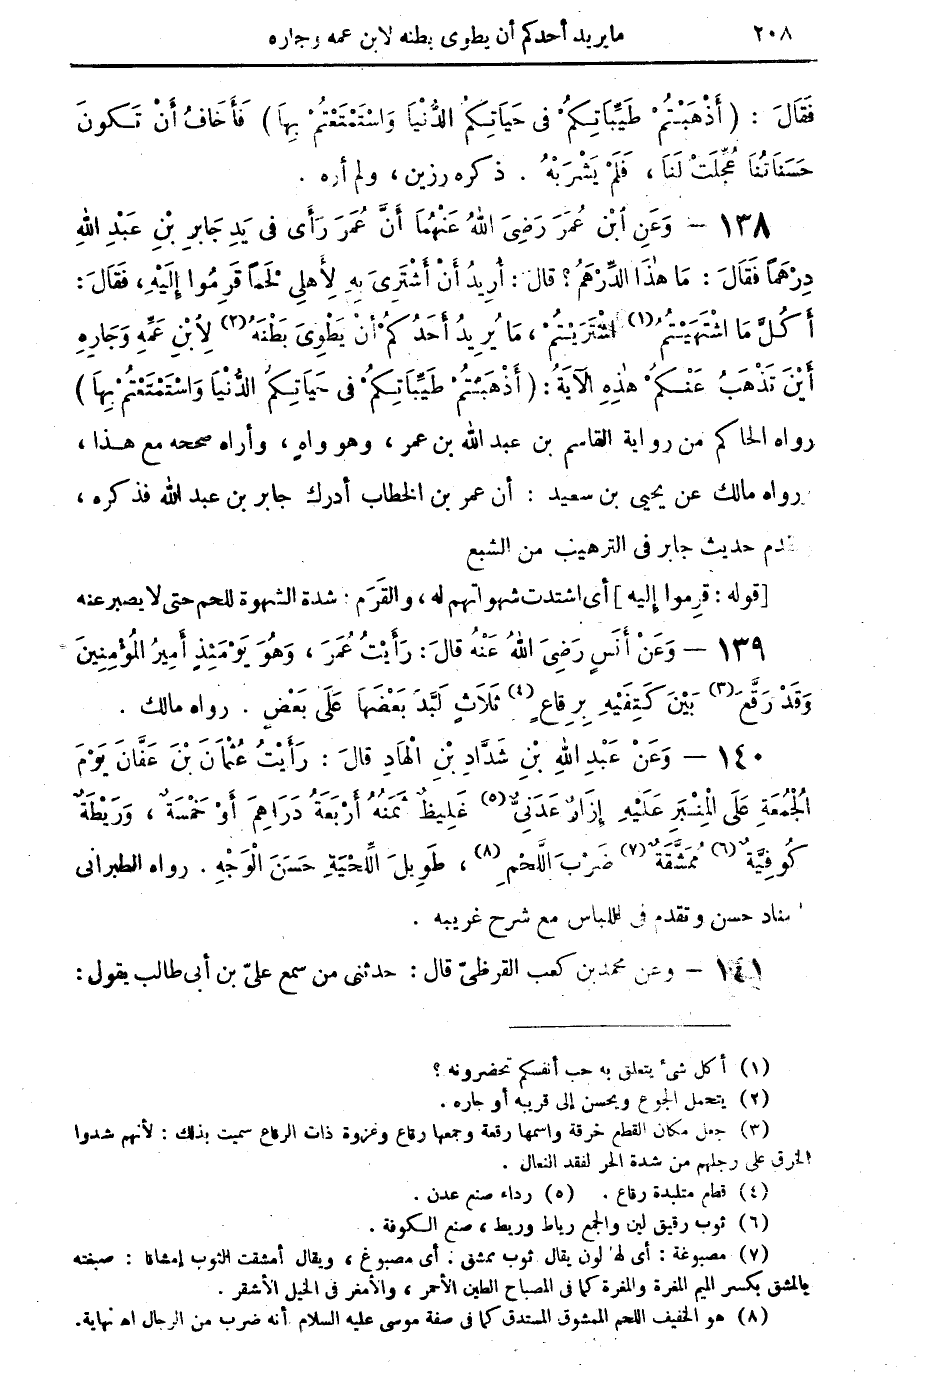 ٢٠٨ ما يريد أحدكم أن يطوى بطنه لابن عمه وجاره
فَقَالَ : ( أَذْهَبْتُمْ طَيِّبَاتِكُمْ فى حَيَاتِكُمُ الدُّنْيَا وَاسْتَمْتَعْتُمْ بِهَا ) فَأَخَافُ أَنْ تَكُونَ
حَسَنَاتُنَا عُجِّلَتْ لَنَا ، فَلَمْ يَشْرَبْهُ . ذكره رزين ، ولم أره .
١٣٨ – وَعَنِ ابْنِ عُمَرَ رَضِىَ اللهُ عَنْهُمَا أَنَّ عُمَرَ رَأَى فى يَدِ جَابِرِ بْنِ عَبْدِ اللهِ
دِرْهَماً فَقَالَ : مَا هٰذَا الدِّرْهَمُ ؟ قالَ : أُرِيدُ أَنْ أَشْتَرِىَ بِهِ لِأَهْلِى لَحْماً قَرِمُوا إِلَيْهِ ، فَقَالَ :
أَكُلَّ مَا اشْتَهَيْتُمُ (١) اشْتَرَيْتُمْ ، مَا يُرِيدُ أَحَدُكُمْ أَنْ يَطْوِىَ بَطْنَهُ (٢) لِابْنِ عَمِّهِ وَجَارِهِ
أَيْنَ تَذْهَبُ عَنْكُمْ هٰذِهِ الآيَةُ : ( أَذْهَبْتُمْ طَيِّبَاتِكُمْ فى حَيَاتِكُمُ الدُّنْيَا وَاسْتَمْتَعْتُمْ بِهَا )
رواه الحاكم من رواية القاسم بن عبد الله بن عمر ، وهو واهٍ ، وأراه صححه مع هذا ،
رواه مالك عن يحيى بن سعيد : أن عمر بن الخطاب أدرك جابر بن عبد الله فذكره ،
حديث جابر فى الترهيب من الشبع
[ قوله : قرِموا إليه ] أى اشتدت شهواتهم له ، والقَرَم : شدة الشهوة للحم حتى لا يصبر عنه
١٣٩ – وَعَنْ أَنَسٍ رَضِىَ اللهُ عَنْهُ قالَ : رَأَيْتُ عُمَرَ ، وَهُوَ يَوْمَئِذٍ أَمِيرُ الْمُؤْمِنِينَ
وَقَدْ رَقَّعَ (٣) بَيْنَ كَتِفَيْهِ بِرِقاعٍ (٤) ثَلَاثٍ لَبَّدَ بَعْضَهَا عَلَى بَعْضٍ . رواه مالك .
١٤٠ – وَعَنْ عَبْدِ اللهِ بْنِ شَدَّادِ بْنِ الْهَادِ قالَ : رَأَيْتُ عُثْمَانَ بْنَ عَفَّانَ يَوْمَ
الْجُمُعَةِ عَلَى الْمِنْبَرِ عَلَيْهِ إِزَارٌ عَدَنِىٌّ (٥) غَلِيظٌ ثَمَنُهُ أَرْبَعَةُ دَرَاهِمَ أَوْ خَمْسَةٌ ، وَرَيْطَةٌ
كُوفِيَّةٌ (٦) مُمَشَّقَةٌ (٧) ضَرْبَ اللَّحْمِ (٨) ، طَوِيلَ اللِّحْيَةِ حَسَنَ الْوَجْهِ . رواه الطبرانى
حسن وتقدم فى اللباس مع شرح غريبه .
١٤١ – وعن محمد بن كعب القرظىّ قال : حدثنى من سمع علىّ بن أبى طالب يقول :
(١) أكل شىء يتعلق به حب أنفسكم تحضرونه ؟
(٢) يتحمل الجوع ويحسن إلى قريبه أو جاره .
(٣) جعل مكان القطع خرقة واسمها رقعة وجمعها رقاع وغزوة ذات الرقاع سميت بذلك : لأنهم شدوا
الخرق على رجلهم من شدة الحر لفقد النعال .
(٤) قطع متلبدة رقاع . (٥) رداء صنع عدن .
(٦) ثوب رقيق لين والجمع رياط وريط ، صنع الكوفة .
(٧) مصبوغة : أى لها لون يقال ثوب ممشق : أى مصبوغ ، ويقال أمشقت الثوب إمشاقا : صبغته
بالمشق بكسر الميم المغرة والمغرة كما فى المصباح الطين الأحمر ، والأمغر فى الخيل الأشقر .
(٨) هو الخفيف اللحم الممشوق المستدق كما فى صفة موسى عليه السلام أنه ضرب من الرجال اه نهاية .